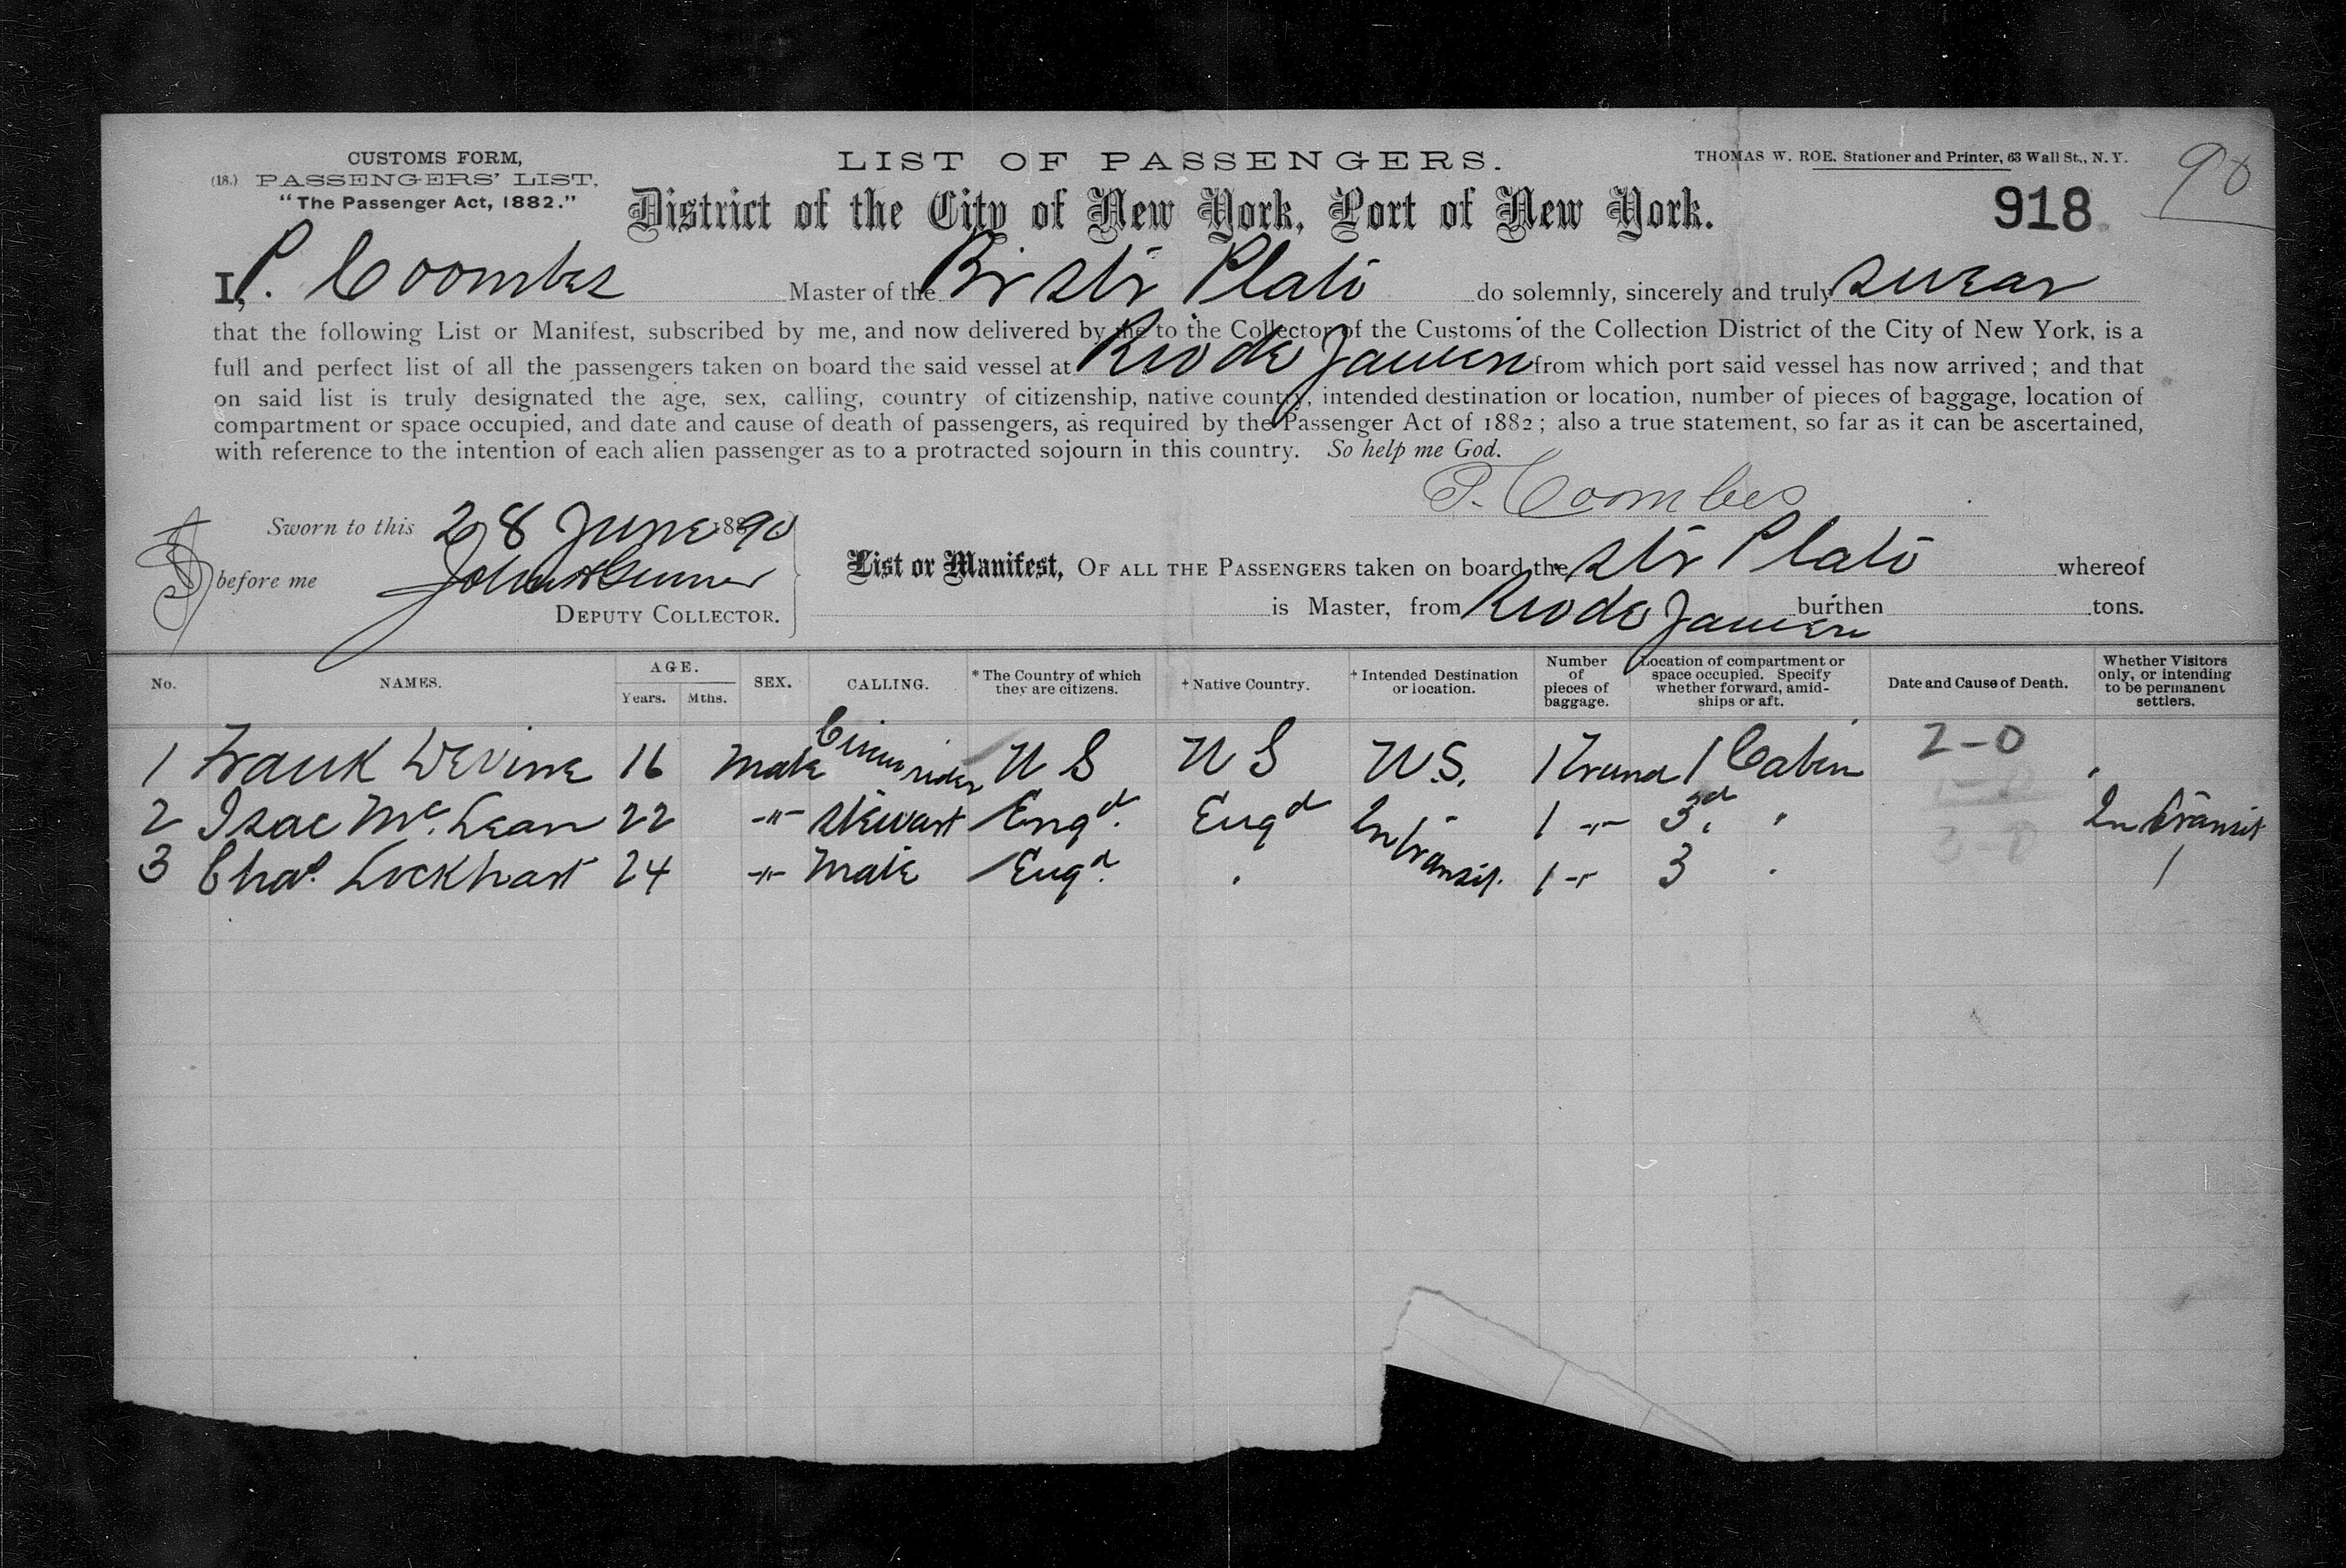 CUSTOMS FORM,
(18.) PASSENGERS' LIST,
"The Passenger Act, 1882."
LIST OF PASSENGERS.
THOMAS W. ROE, Stationer and Printer, 63 Wall St., N.Y.
90
District of the City of New York, Port of New York.
918
I, P. Coombes Master of the Br Str Plato do solemnly, sincerely and truly swear
that the following List or Manifest, subscribed by me, and now delivered by me to the Collector of the Customs of the Collection District of the City of New York, is a
full and perfect list of all the passengers taken on board the said vessel at Rio de Janiero from which port said vessel has now arrived; and that
on said list is truly designated the age, sex, calling, country of citizenship, native country, intended destination or location, number of pieces of baggage, location of
compartment or space occupied, and date and cause of death of passengers, as required by the Passenger Act of 1882; also a true statement, so far as it can be ascertained,
with reference to the intention of each alien passenger as to a protracted sojourn in this country. So help me God.
P. Coombes
Sworn to this 28 June 1890
before me
DEPUTY COLLECTOR.
List or Manifest, OF ALL THE PASSENGERS taken on board the Str Plato whereof
is Master, from Rio de Janiero burthen tons.
No. NAMES. AGE. Years. Mths. SEX. CALLING. * The Country of which they are citizens. † Native Country. † Intended Destination or location. Number of pieces of baggage. Location of compartment or space occupied. Specify whether forward, amidships or aft. Date and Cause of Death. Whether Visitors only, or intending to be permanent settlers.
1 Frank Devine 16 Male Circus rider U S U S U.S. 1 Trunk 1 Cabin 2-0
2 Isac Mc. Lean 22 -"- Stewart Engd. Engd In transit 1 -"- 3d. " In transit
3 Chas. Lockhart 24 -"- Mate Engd. " 1 -"- 3 "